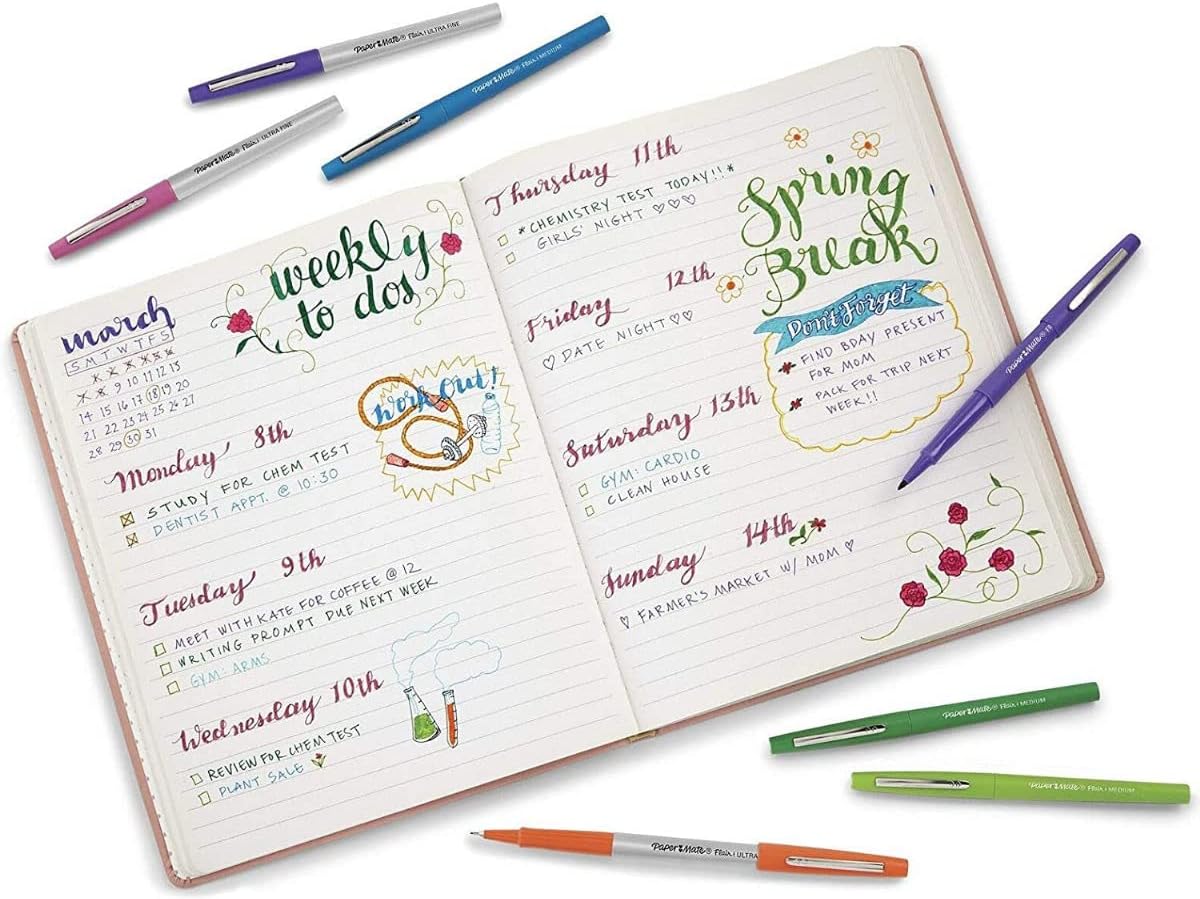 march
S M T W T F S
9 10 11 12 13
14 15 16 17 18 19 20
21 22 23 24 25 26 27
28 29 30 31
weekly
to dos
Work Out!
Monday 8th
STUDY FOR CHEM TEST
DENTIST APPT. @ 10:30
Tuesday 9th
MEET WITH KATE FOR COFFEE @ 12
WRITING PROMPT DUE NEXT WEEK
GYM: ARMS
Wednesday 10th
REVIEW FOR CHEM TEST
PLANT SALE
Thursday 11th
*CHEMISTRY TEST TODAY!!*
GIRLS' NIGHT ♡♡♡
Friday 12th
♡ DATE NIGHT ♡♡
Saturday 13th
GYM: CARDIO
CLEAN HOUSE
Sunday 14th
♡ FARMER'S MARKET W/ MOM ♡
Spring
Break
Don't Forget
FIND BDAY PRESENT
FOR MOM
PACK FOR TRIP NEXT
WEEK!!
Paper Mate® Flair. | ULTRA FINE
Paper Mate® Flair. | MEDIUM
Paper Mate® Flair. | ULTRA FINE
Paper Mate® Fl
Paper Mate® Flair. | MEDIUM
Paper Mate® Flair. | MEDIUM
Paper Mate® Flair. | ULTRA